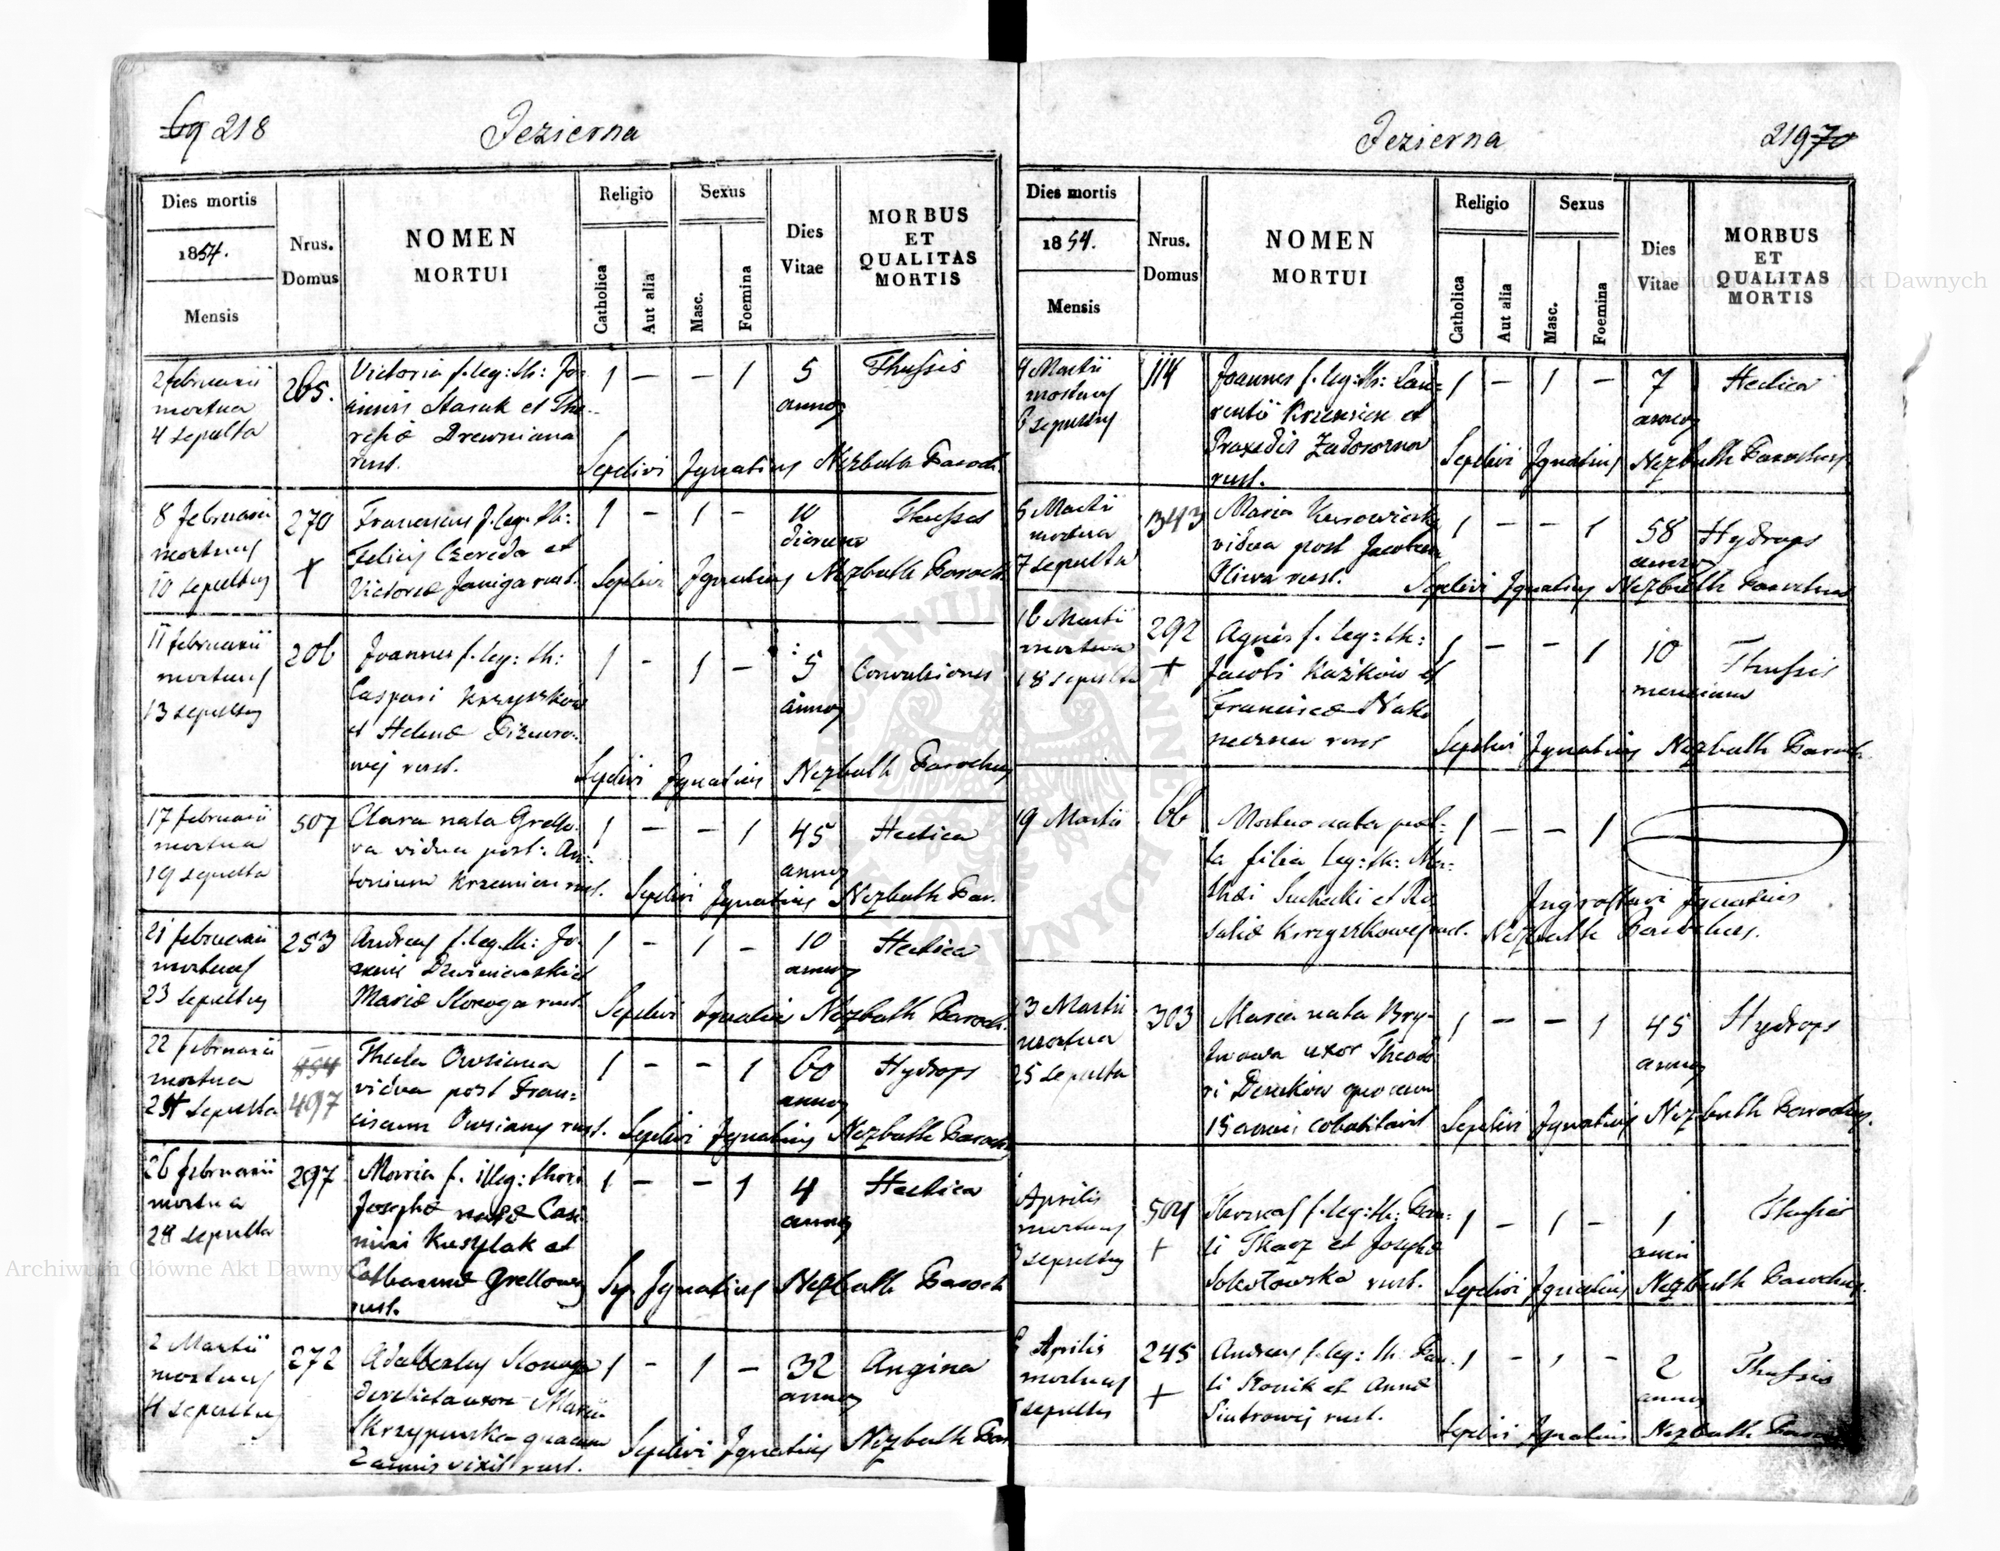 69 218 Jezierna
Dies mortis
1854.
Mensis
Nrus. Domus
NOMEN MORTUI
Religio
Catholica
Aut alia
Sexus
Masc.
Foemina
Dies Vitae
MORBUS ET QUALITAS MORTIS
2 februarii 265. Victoria f. leg: th: Jo- 1 — — 1 5 Thussis
mortua annor
4 sepulta resiae Drewniana
rust. Sepelivi Ignatius Nezbuth Paroch.
8 februarii 270 Franciscus f. leg. th: 1 - 1 - 10 Thussis
mortuus + Felicis Czereda et dierum
10 sepultus Victoriae Janiga rust. Sepelivi Ignatius Nezbuth Paroch.
11 februarii 206 Joannes f. leg: th: 1 - 1 - 5 Convulsiones
mortuus Caspari Krzyszków annor
13 sepultus et Helenae
rust. Sepelivi Ignatius Nezbuth Parochus
17 februarii 507 Clara nata 1 — — 1 45 Hectica
mortua va vidua post: An- annor
19 sepulta tonium Krzemien rust. Sepelivi Ignatius Nezbuth Par.
21 februarii 253 Andreas f. leg. th: Jo- 1 - 1 - 10 Hectica
mortuus annor
23 sepultus Mariae Stonoga rust. Sepelivi Ignatius Nezbuth Paroch.
22 februarii 454 Thecla Owsiana 1 - - 1 60 Hydrops
mortua 497 vidua post Fran- annor
24 sepulta ciscum Owsiany rust. Sepelivi Ignatius Nezbuth Paroch
26 februarii 297 Maria f. illeg: thori 1 — — 1 4 Hectica
mortua Josephae natae Casi- annor
28 sepulta miri Kusylak et
Catharinae Grellowej
rust. Sep Ignatius Nezbuth Paroch
2 Martii 272 Adalbertus Stonoga 1 - 1 - 32 Angina
mortuus derelicta uxore Maria annor
4 sepultus quacum
2 annis vixit rust. Sepelivi Ignatius Nezbuth Par.
Jezierna 219 70
Dies mortis
1854.
Mensis
Nrus. Domus
NOMEN MORTUI
Religio
Catholica
Aut alia
Sexus
Masc.
Foemina
Dies Vitae
MORBUS ET QUALITAS MORTIS
4 Martii 114 Joannes f. leg: th: Lau- 1 - 1 - 7 Hectica
mortuus rentii Krzemien et annor
6 sepultus Praxedis
rust. Sepelivi Ignatius Nezbuth Parochus
5 Martii 343 Maria 1 - - 1 58 Hydrops
mortua vidua post Jacobum annor
7 sepulta Oliwa rust. Sepelivi Ignatius Nezbuth Parochus
16 Martii 292 Agnes f. leg: th: 1 - - 1 10 Thussis
mortua + Jacobi Kaźków et mensium
18 sepulta Franciscae
rust Sepelivi Ignatius Nezbuth Paroch.
19 Martii 66 Mortuo nata prol- 1 — — 1
ta filia leg: th: Ma-
thei Suchecki et Ro Ingrossavi Ignatius
saliae Krzyszkowej rust. Nezbuth Parochus.
23 Martii 303 Maria nata Bry- 1 — — 1 45 Hydrops
mortua uxor Theodo annor
25 sepulta ri quocum
15 annis cohabitavit Sepelivi Ignatius Nezbuth Parochus.
Aprilis 504 f. leg: th: Pau- 1 - 1 - 1 Thussis
mortuus + li Tkacz et Josephae anni
3 sepultus Sokołowska rust. Sepelivi Ignatius Nezbuth Parochus.
Aprilis 245 Andreas f. leg: th: Pau- 1 - 1 - 2 Thussis
mortuus + li et Annae annor
sepultus rust. Sepelivi Ignatius Nezbuth
Archiwum Główne Akt Dawnych
Archiwum Główne Akt Dawnych